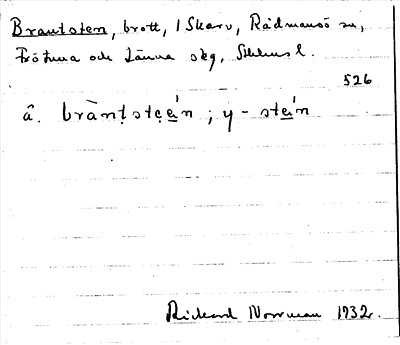 Brantsten, brott, i Skarv, Rådmansö sn,
Frötuna och Länna skg, Sthlms l.
526
â. bràntsteǽn ; y - stein
Rickard Norrman 1932.